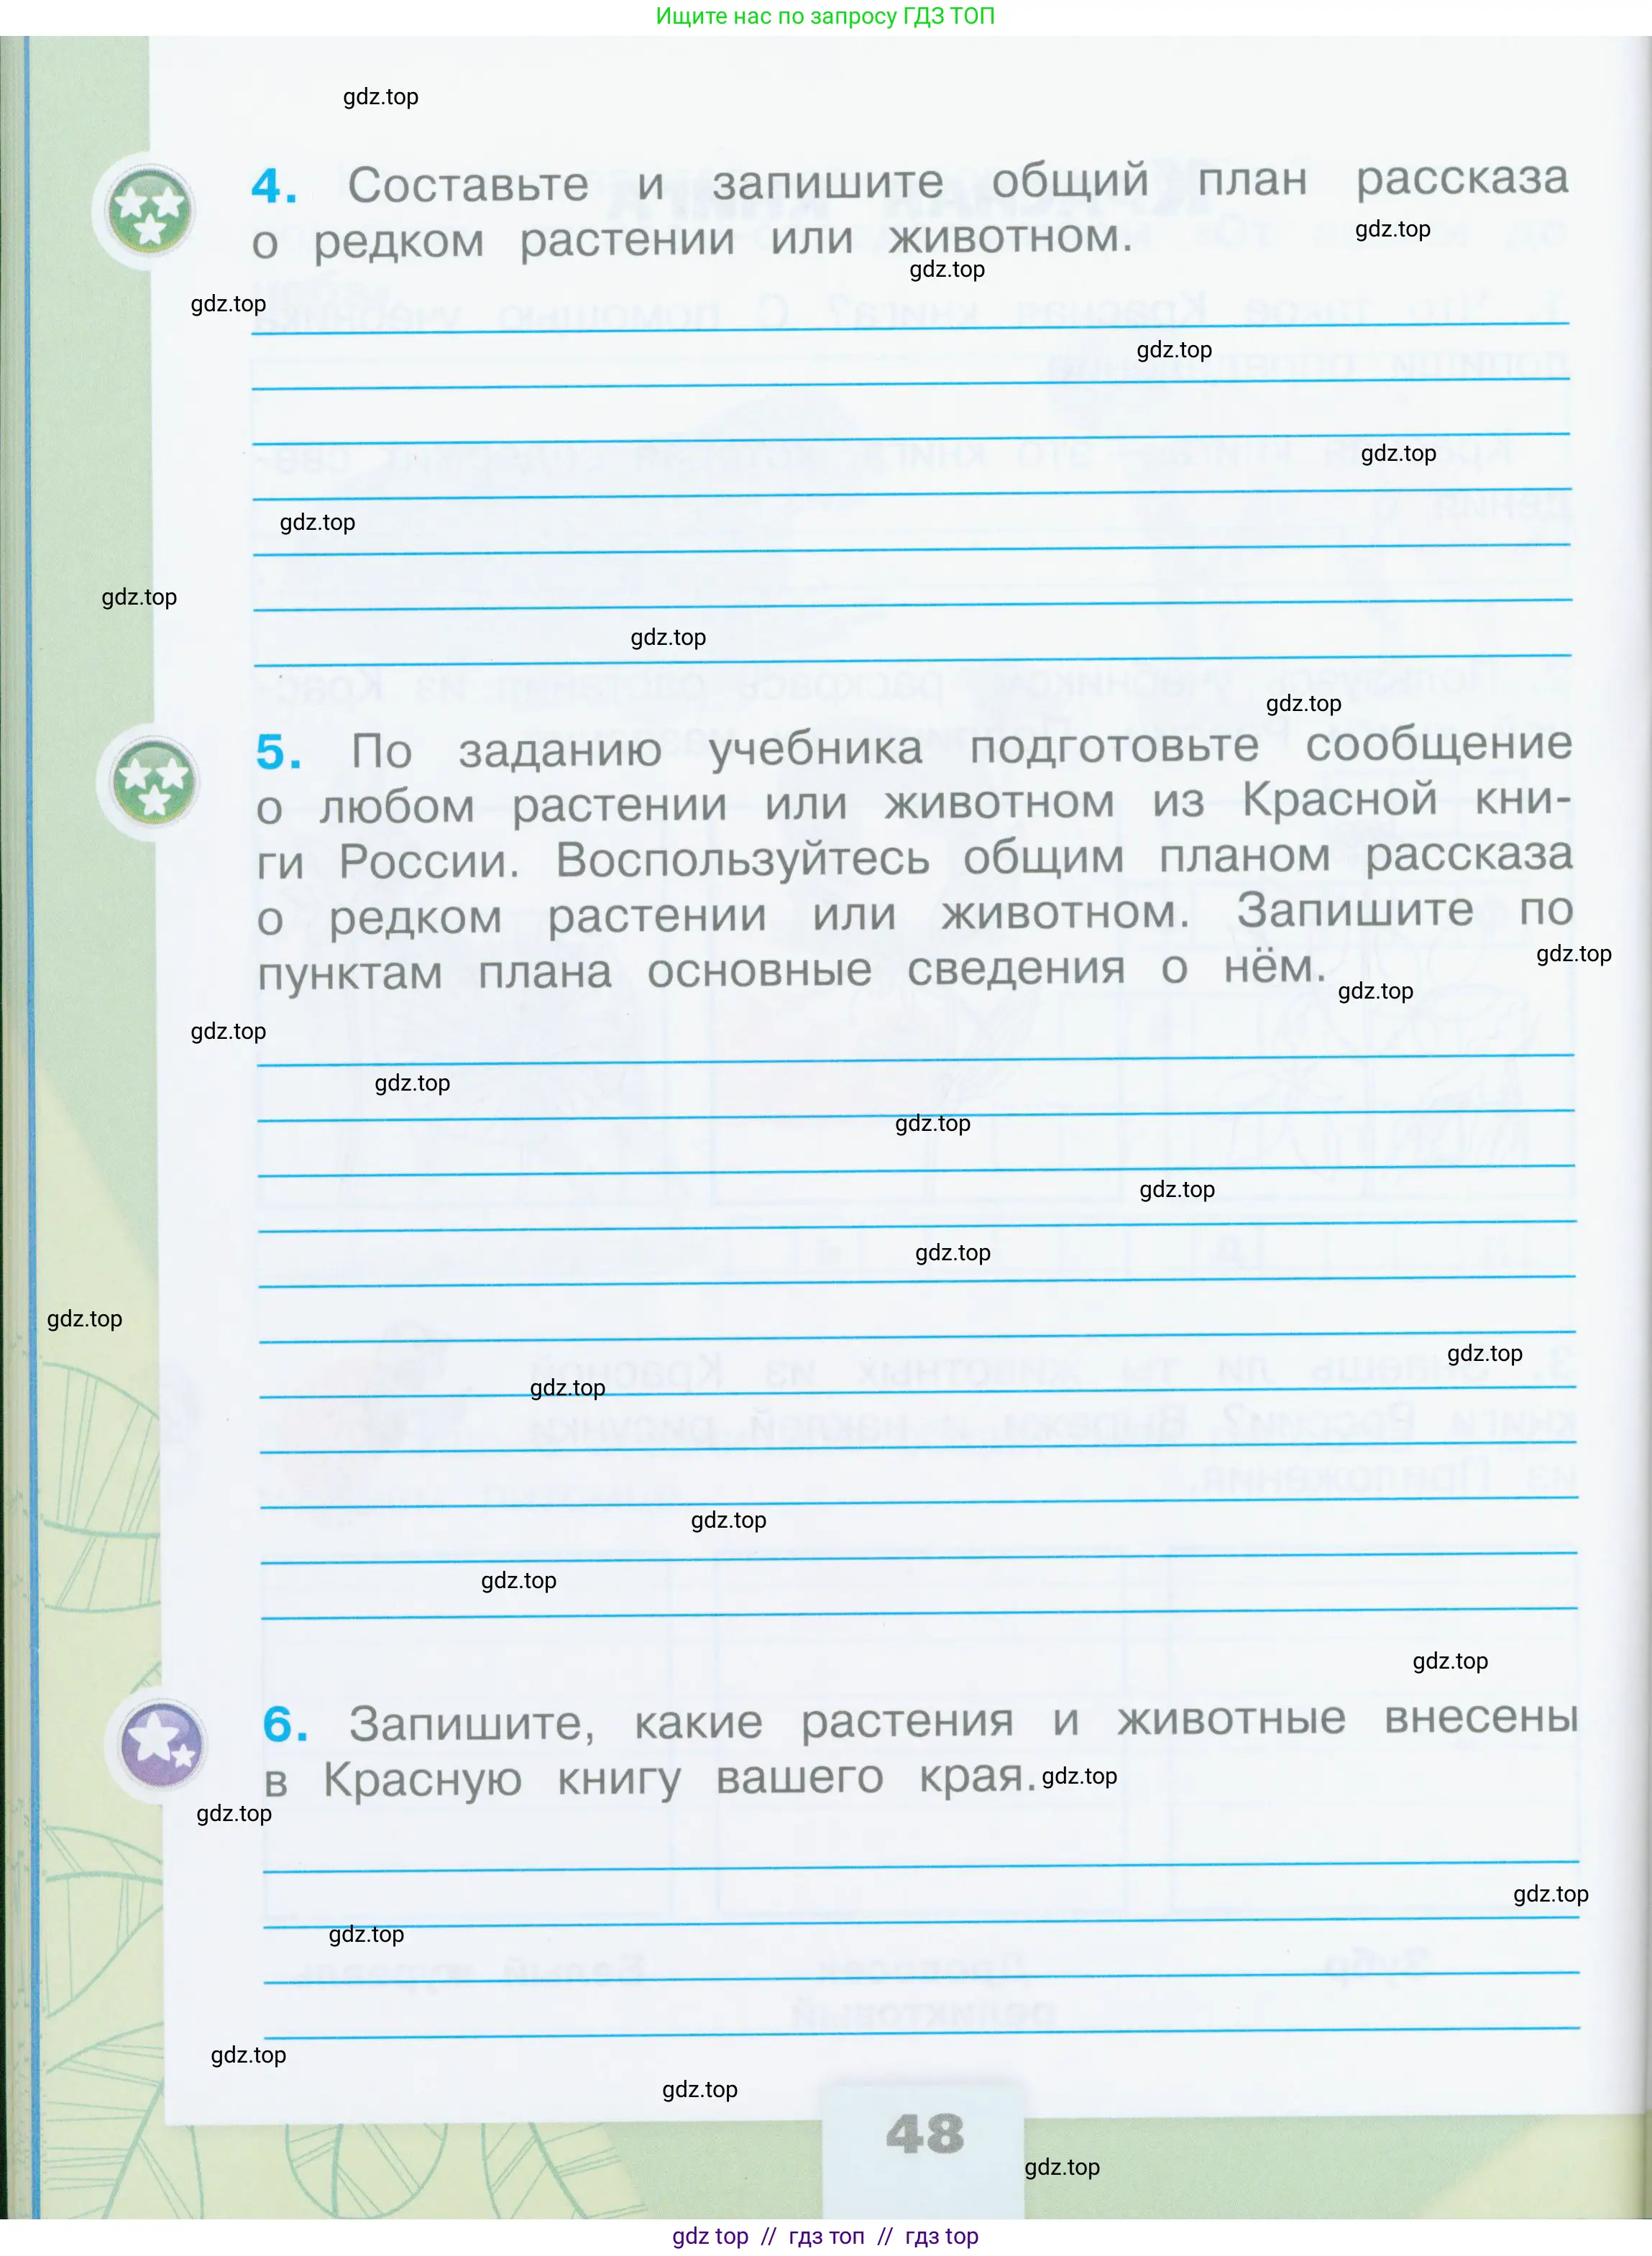 Ищите нас по запросу ГДЗ ТОП
gdz.top
4. Составьте и запишите общий план рассказа
gdz.top
о редком растении или животном.
gdz.top
gdz.top
gdz.top
gdz.top
gdz.top
gdz.top
gdz.top
gdz.top
5. По заданию учебника подготовьте сообщение
о любом растении или животном из Красной кни-
ги России. Воспользуйтесь общим планом рассказа
о редком растении или животном. Запишите по
gdz.top
пунктам плана основные сведения о нём.
gdz.top
gdz.top
gdz.top
gdz.top
gdz.top
gdz.top
gdz.top
gdz.top
gdz.top
gdz.top
gdz.top
gdz.top
6. Запишите, какие растения и животные внесены
в Красную книгу вашего края.
gdz.top
gdz.top
gdz.top
gdz.top
gdz.top
gdz.top
48
gdz.top
gdz top // гдз топ // гдз top